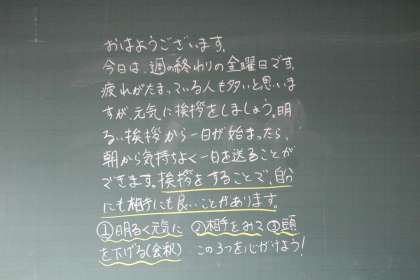 おはようございます。
今日は、週の終わりの金曜日です。
疲れがたまっている人も多いと思いま
すが、元気に挨拶をしましょう。明
るい挨拶から一日が始まったら、
朝から気持ちよく一日を送ることが
できます。挨拶をすることで、自分
にも相手にも良いことがあります。
①明るく元気に ②相手をみて ③頭
を下げる(会釈) この3つを心がけよう!